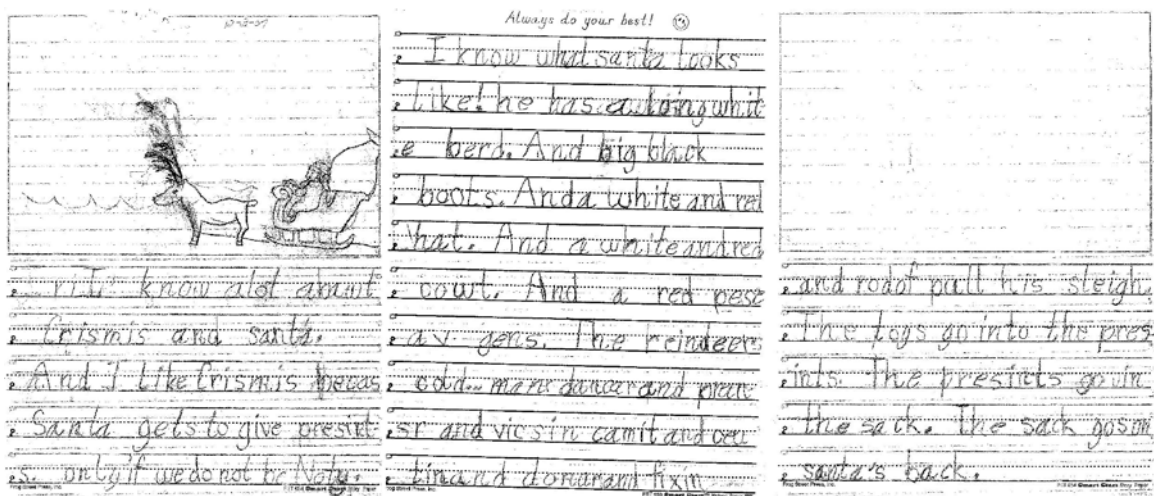 Always do your best!
know alot abawt
Crismis and santa.
And I like Crismis becas
Santa gets to give presint
s. only if we do not be Noty.
Frog Street Press, Inc.
I know what santa looks
like! he has a loing whit
e berd. And big black
boots. And a white and red
hat. And a white and red
cowt. And a red pese
av gens. The reindeers
cold... mane dancer and pran
sr and vicsin camit and ceu
tin and donar and fixin
Frog Street Press, Inc.
and rodof pull his sleigh.
The toys go into the pres
ints. The presints go in
the sack. The sack gos on
santa's back.
Frog Street Press, Inc.